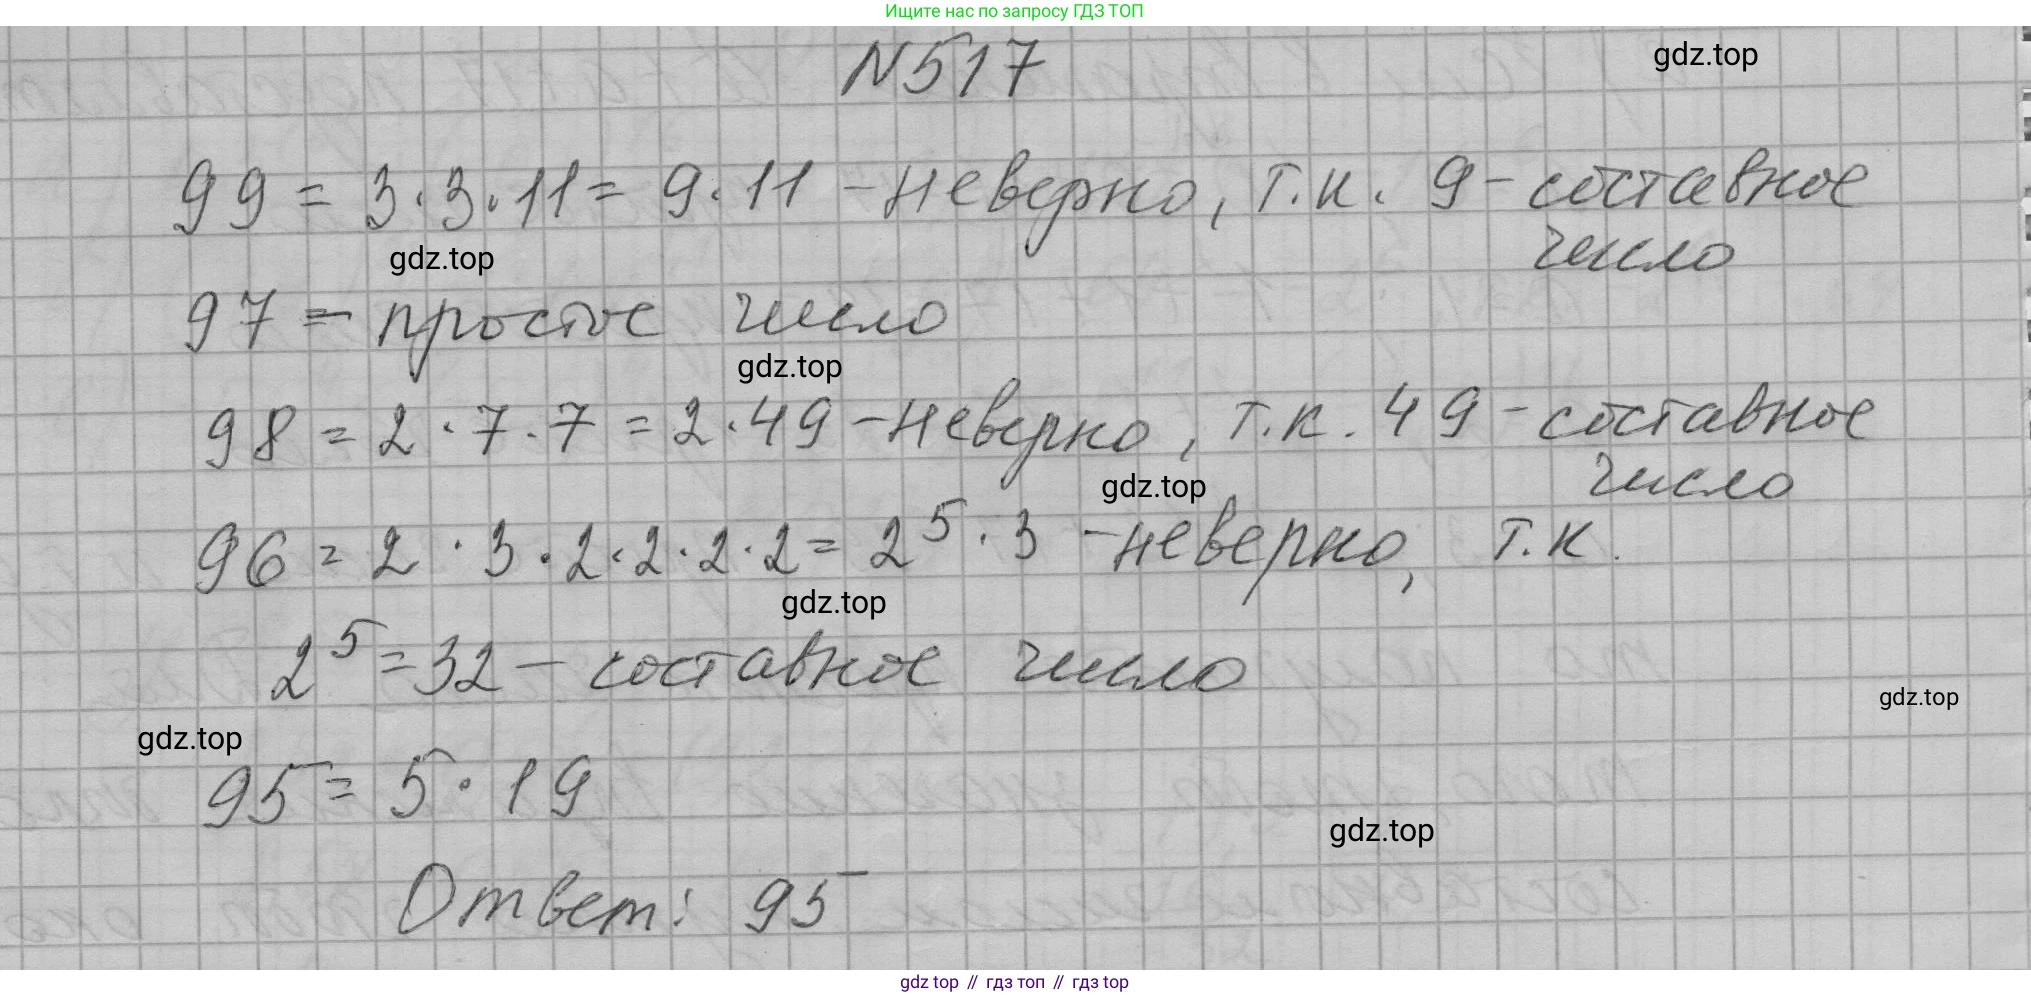 Ищите нас по запросу ГДЗ ТОП
N517
gdz.top
99 = 3·3·11 = 9·11 – неверно, т.к. 9 – составное
число
gdz.top
97 – простое число
gdz.top
98 = 2·7·7 = 2·49 – неверно, т.к. 49 – составное
число
gdz.top
96 = 2·3·2·2·2·2 = 2⁵·3 – неверно, т.к.
gdz.top
2⁵ = 32 – составное число
gdz.top
gdz.top
95 = 5·19
gdz.top
Ответ: 95
gdz top // гдз топ // гдз top